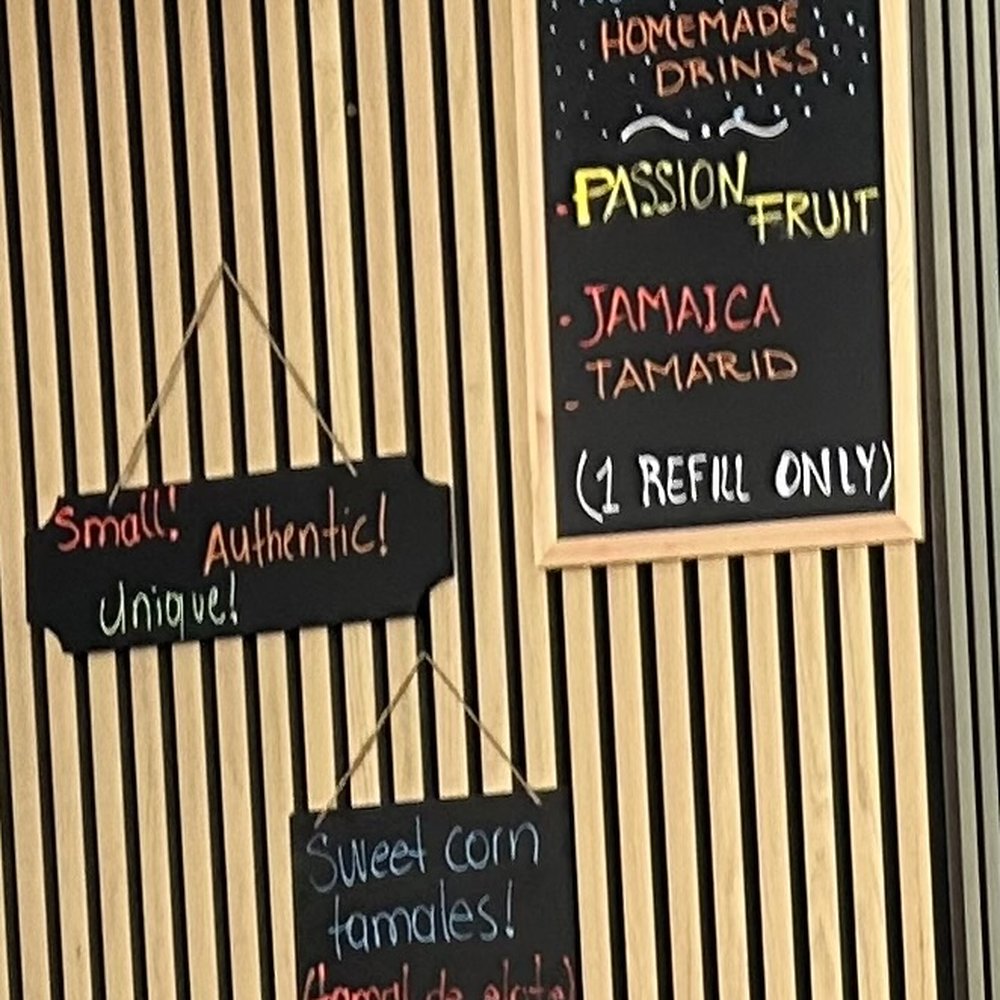 HOMEMADE
DRINKS
PASSION FRUIT
JAMAICA
TAMARID
(1 REFILL ONLY)
Small! Authentic!
Unique!
Sweet corn
tamales!
(tamal de elote)